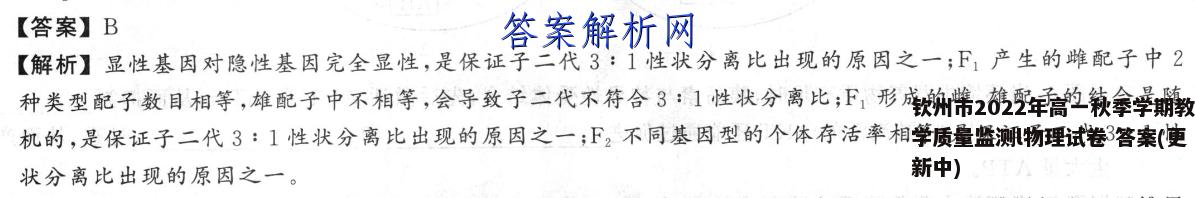 【答案】B
答案解析网
【解析】显性基因对隐性基因完全显性,是保证子二代3∶1性状分离比出现的原因之一;F₁ 产生的雌配子中2
种类型配子数目相等,雄配子中不相等,会导致子二代不符合3∶1性状分离比;F₁ 形成的雌、雄配子的结合是随
机的,是保证子二代3∶1性状分离比出现的原因之一;F₂ 不同基因型的个体存活率相等
状分离比出现的原因之一。
钦州市2022年高一秋季学期教
学质量监测l物理试卷 答案(更
新中)